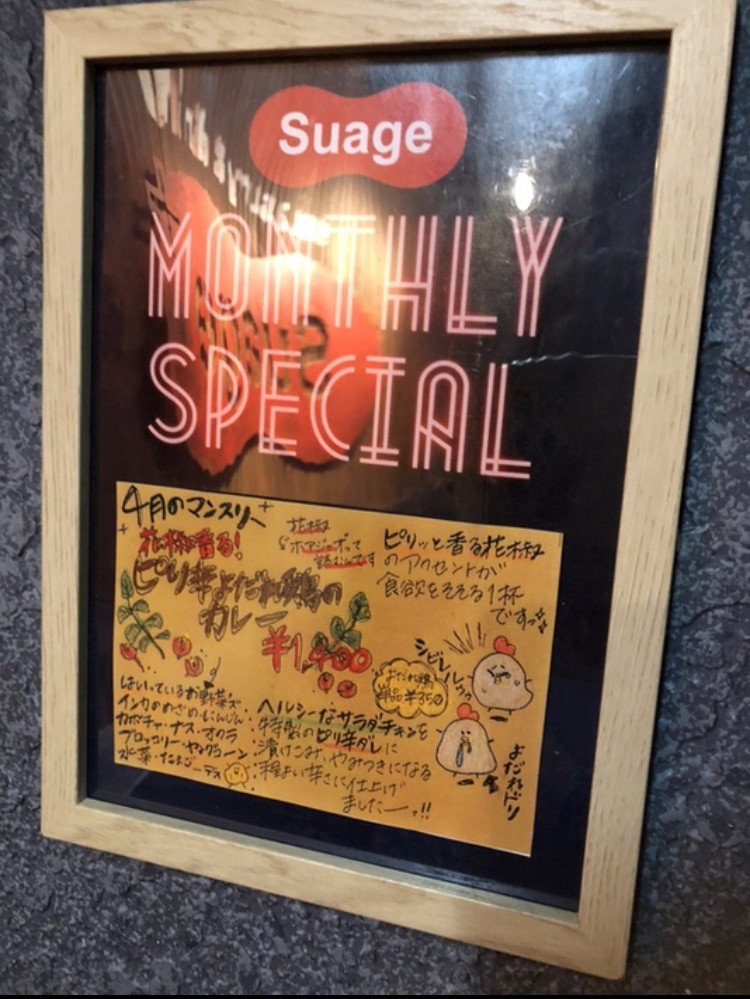 Suage
MONTHLY
SPECIAL
4月のマンスリー
花椒香る!
ピリ辛よだれ鶏の
カレー
¥1,400
花椒
"ホアジャオ"って
読むんです
ピリッと香る花椒
のアクセントが
食欲をそそる1杯
ですっ
シビレルゥッ
よだれ鶏
単品¥350
はいっているお野菜ズ
インカのめざめ・にんじん
カボチャ・ナス・オクラ
ブロッコリー・ヤングコーン
水菜・たまごーデス
ヘルシーなサラダチキンを
特製のピリ辛ダレに
漬けこみ、やみつきになる
程よい辛さに仕上げ
ましたーッ!!
よだれドリ